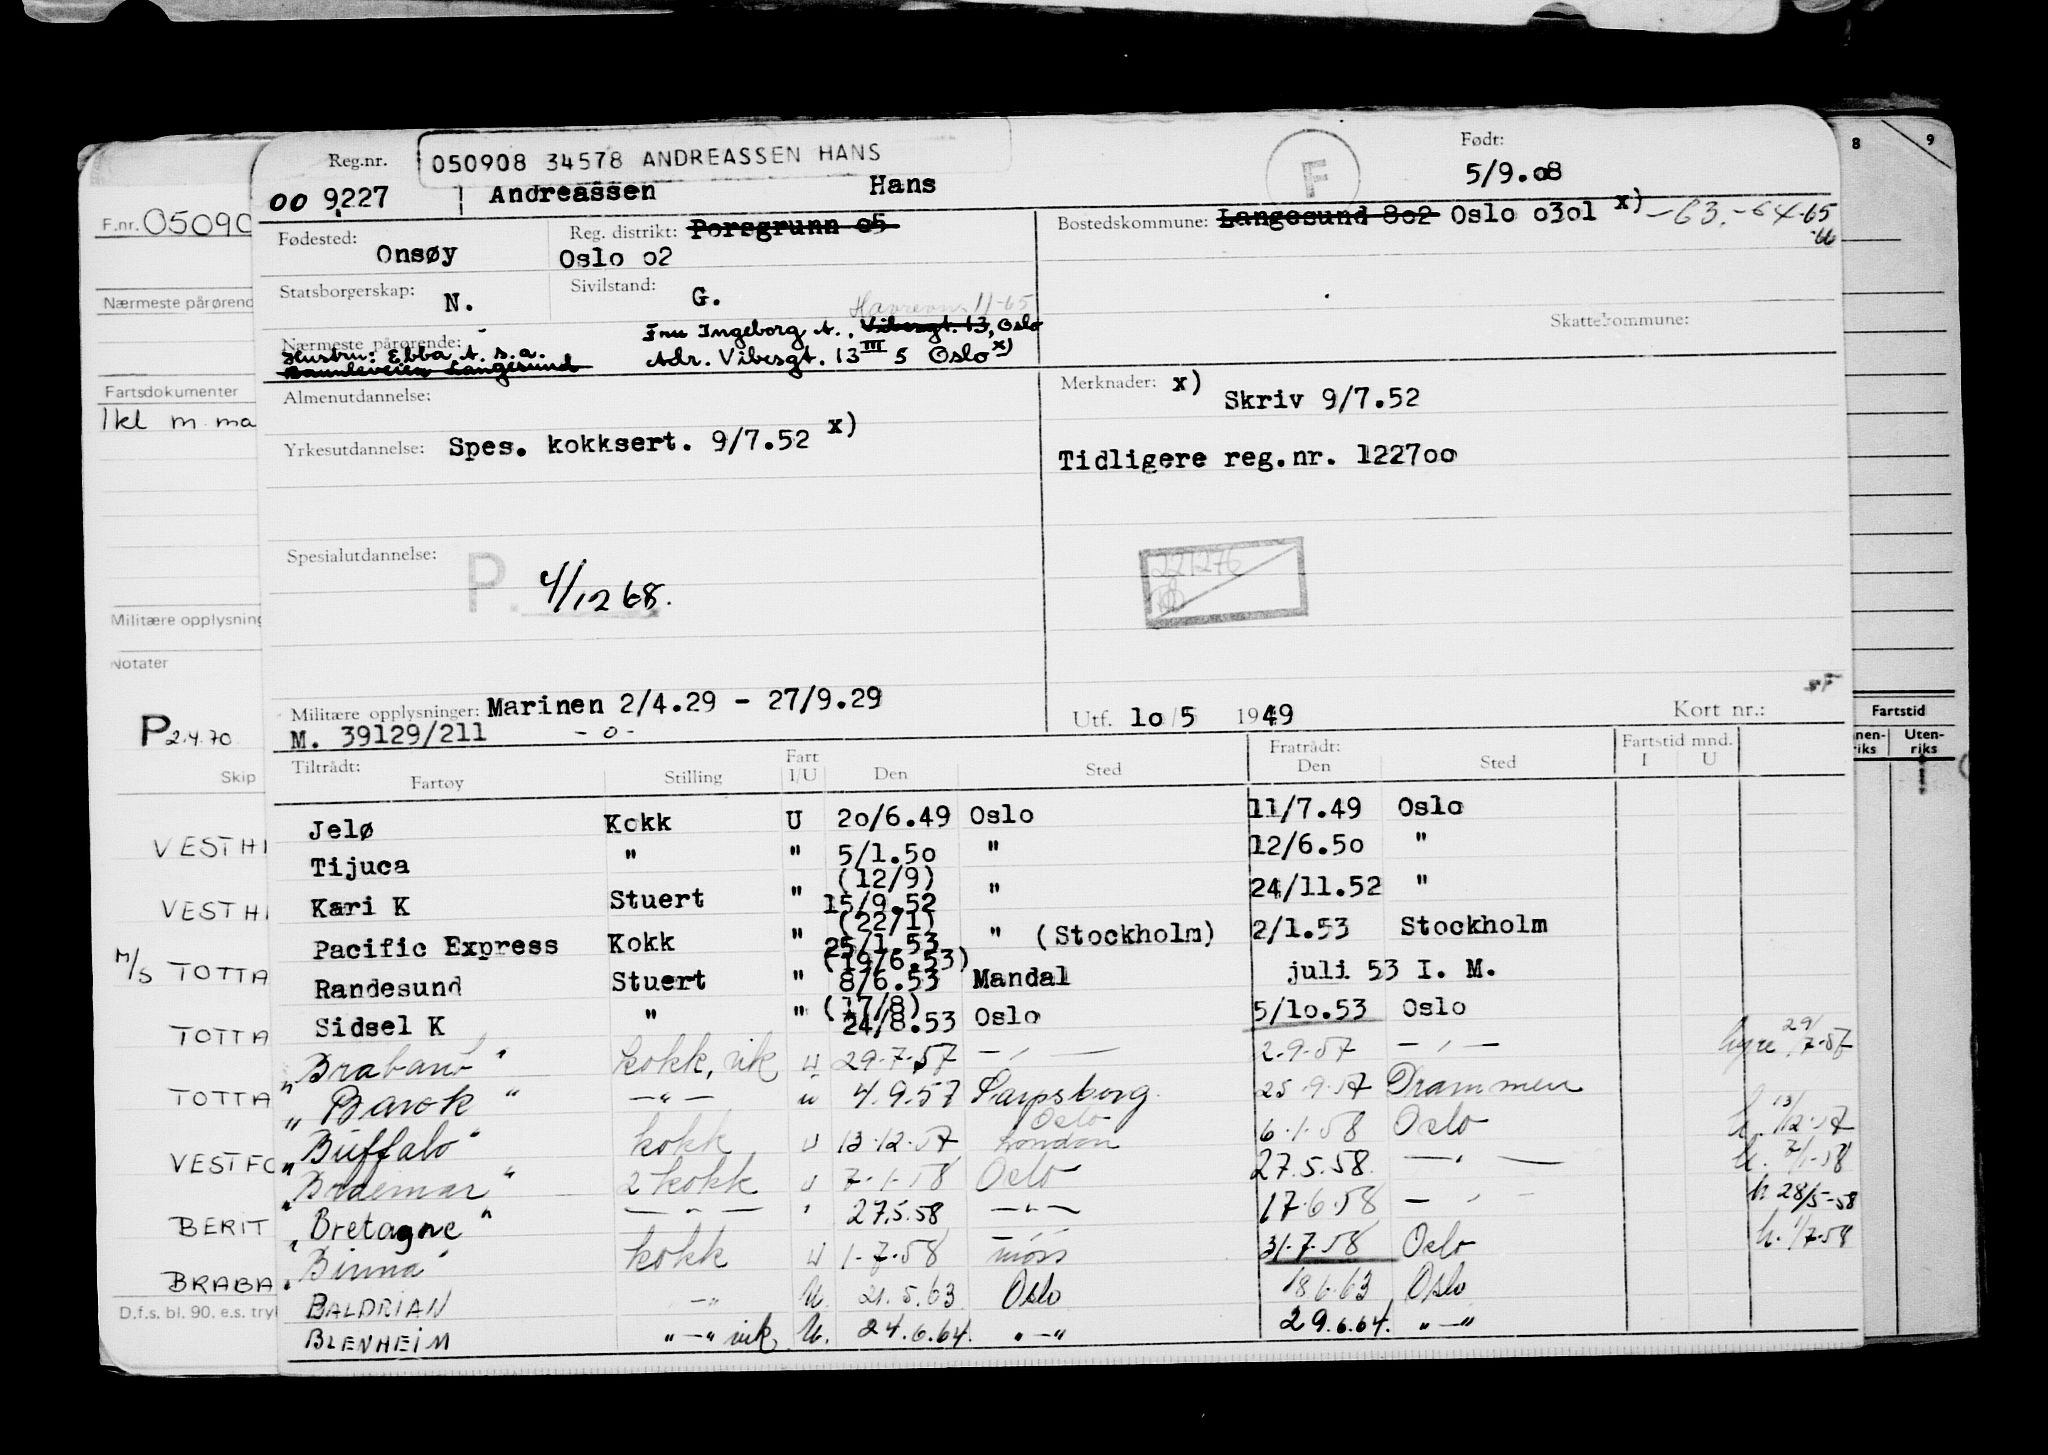 Reg.nr. 050908 34578 ANDREASSEN HANS F Født:
oo 9227 Andreassen Hans 5/9.o8
Fødested: Onsøy Reg. distrikt: Porsgrunn o5 Bostedskommune: Langesund 8o2 Oslo o3ol x) -63.-64-65
-66
Oslo o2
Statsborgerskap: N. Sivilstand: G.
11-65
Skattekommune:
Nærmeste pårørende: Fru Ingeborg A., Vibesgt. 13, Oslo
Hustru: Ebba A. s.a. Adr. Vibesgt. 13 III 5 Oslo x)
Langesund
Almenutdannelse: Merknader: x) Skriv 9/7.52
Yrkesutdannelse: Spes. kokksert. 9/7.52 x)
Tidligere reg.nr. 1227oo
Spesialutdannelse: P. 4/12 68.
221276
Militære opplysninger: Marinen 2/4.29 - 27/9.29
M. 39129/211 - o -
Utf. lo/5 1949 Kort nr.:
Tiltrådt: Fartøy Stilling Fart I/U Den Sted Fratrådt: Den Sted Fartstid mnd. I U
Jelø Kokk U 2o/6.49 Oslo 11/7.49 Oslo
Tijuca " " 5/1.5o " 12/6.5o "
Kari K Stuert " (12/9) 15/9.52 " 24/11.52 "
Pacific Express Kokk " (22/1) 25/1.53 " (Stockholm) 2/1.53 Stockholm
Randesund Stuert " (19/6.53) 8/6.53 Mandal juli 53 I. M.
Sidsel K " " (17/8) 24/8.53 Oslo 5/lo.53 Oslo
"Brabant" kokk, vik u 29.7.57 — " — 2.9.57 — " — hyre 29/7-57
"Barok" — " — u 4.9.57 Sarpsborg 25.9.57 Drammen
"Buffalo" kokk u 13.12.57 Oslo London 6.1.58 Oslo h. 13/12.57
"Braemar" 2 kokk u 7.1.58 Oslo 27.5.58 — " — h. 7/1-58
"Bretagne" — " — " 27.5.58 — " — 17.6.58 — " — h 28/5-58
"Binna" kokk u 1-7.58 Moss 31.7.58 Oslo h. 1/7-58
BALDRIAN —" U. 21.5.63 Oslo 18.6.63 Oslo
BLENHEIM "—" vik U. 24.6.64. "—" 29.6.64. "—"
F.nr. 05090
Nærmeste pårørend
Fartsdokumenter
1kl m ma
Militære opplysning
Notater
P 2.4.70
Skip
VESTHI
VESTHI
M/S TOTTA
TOTTA
TOTTA
VESTFO
BERIT
BRABA
D.f.s. bl. 90. e.s. tryk
8 9
Fartstid
nen-riks Uten-riks